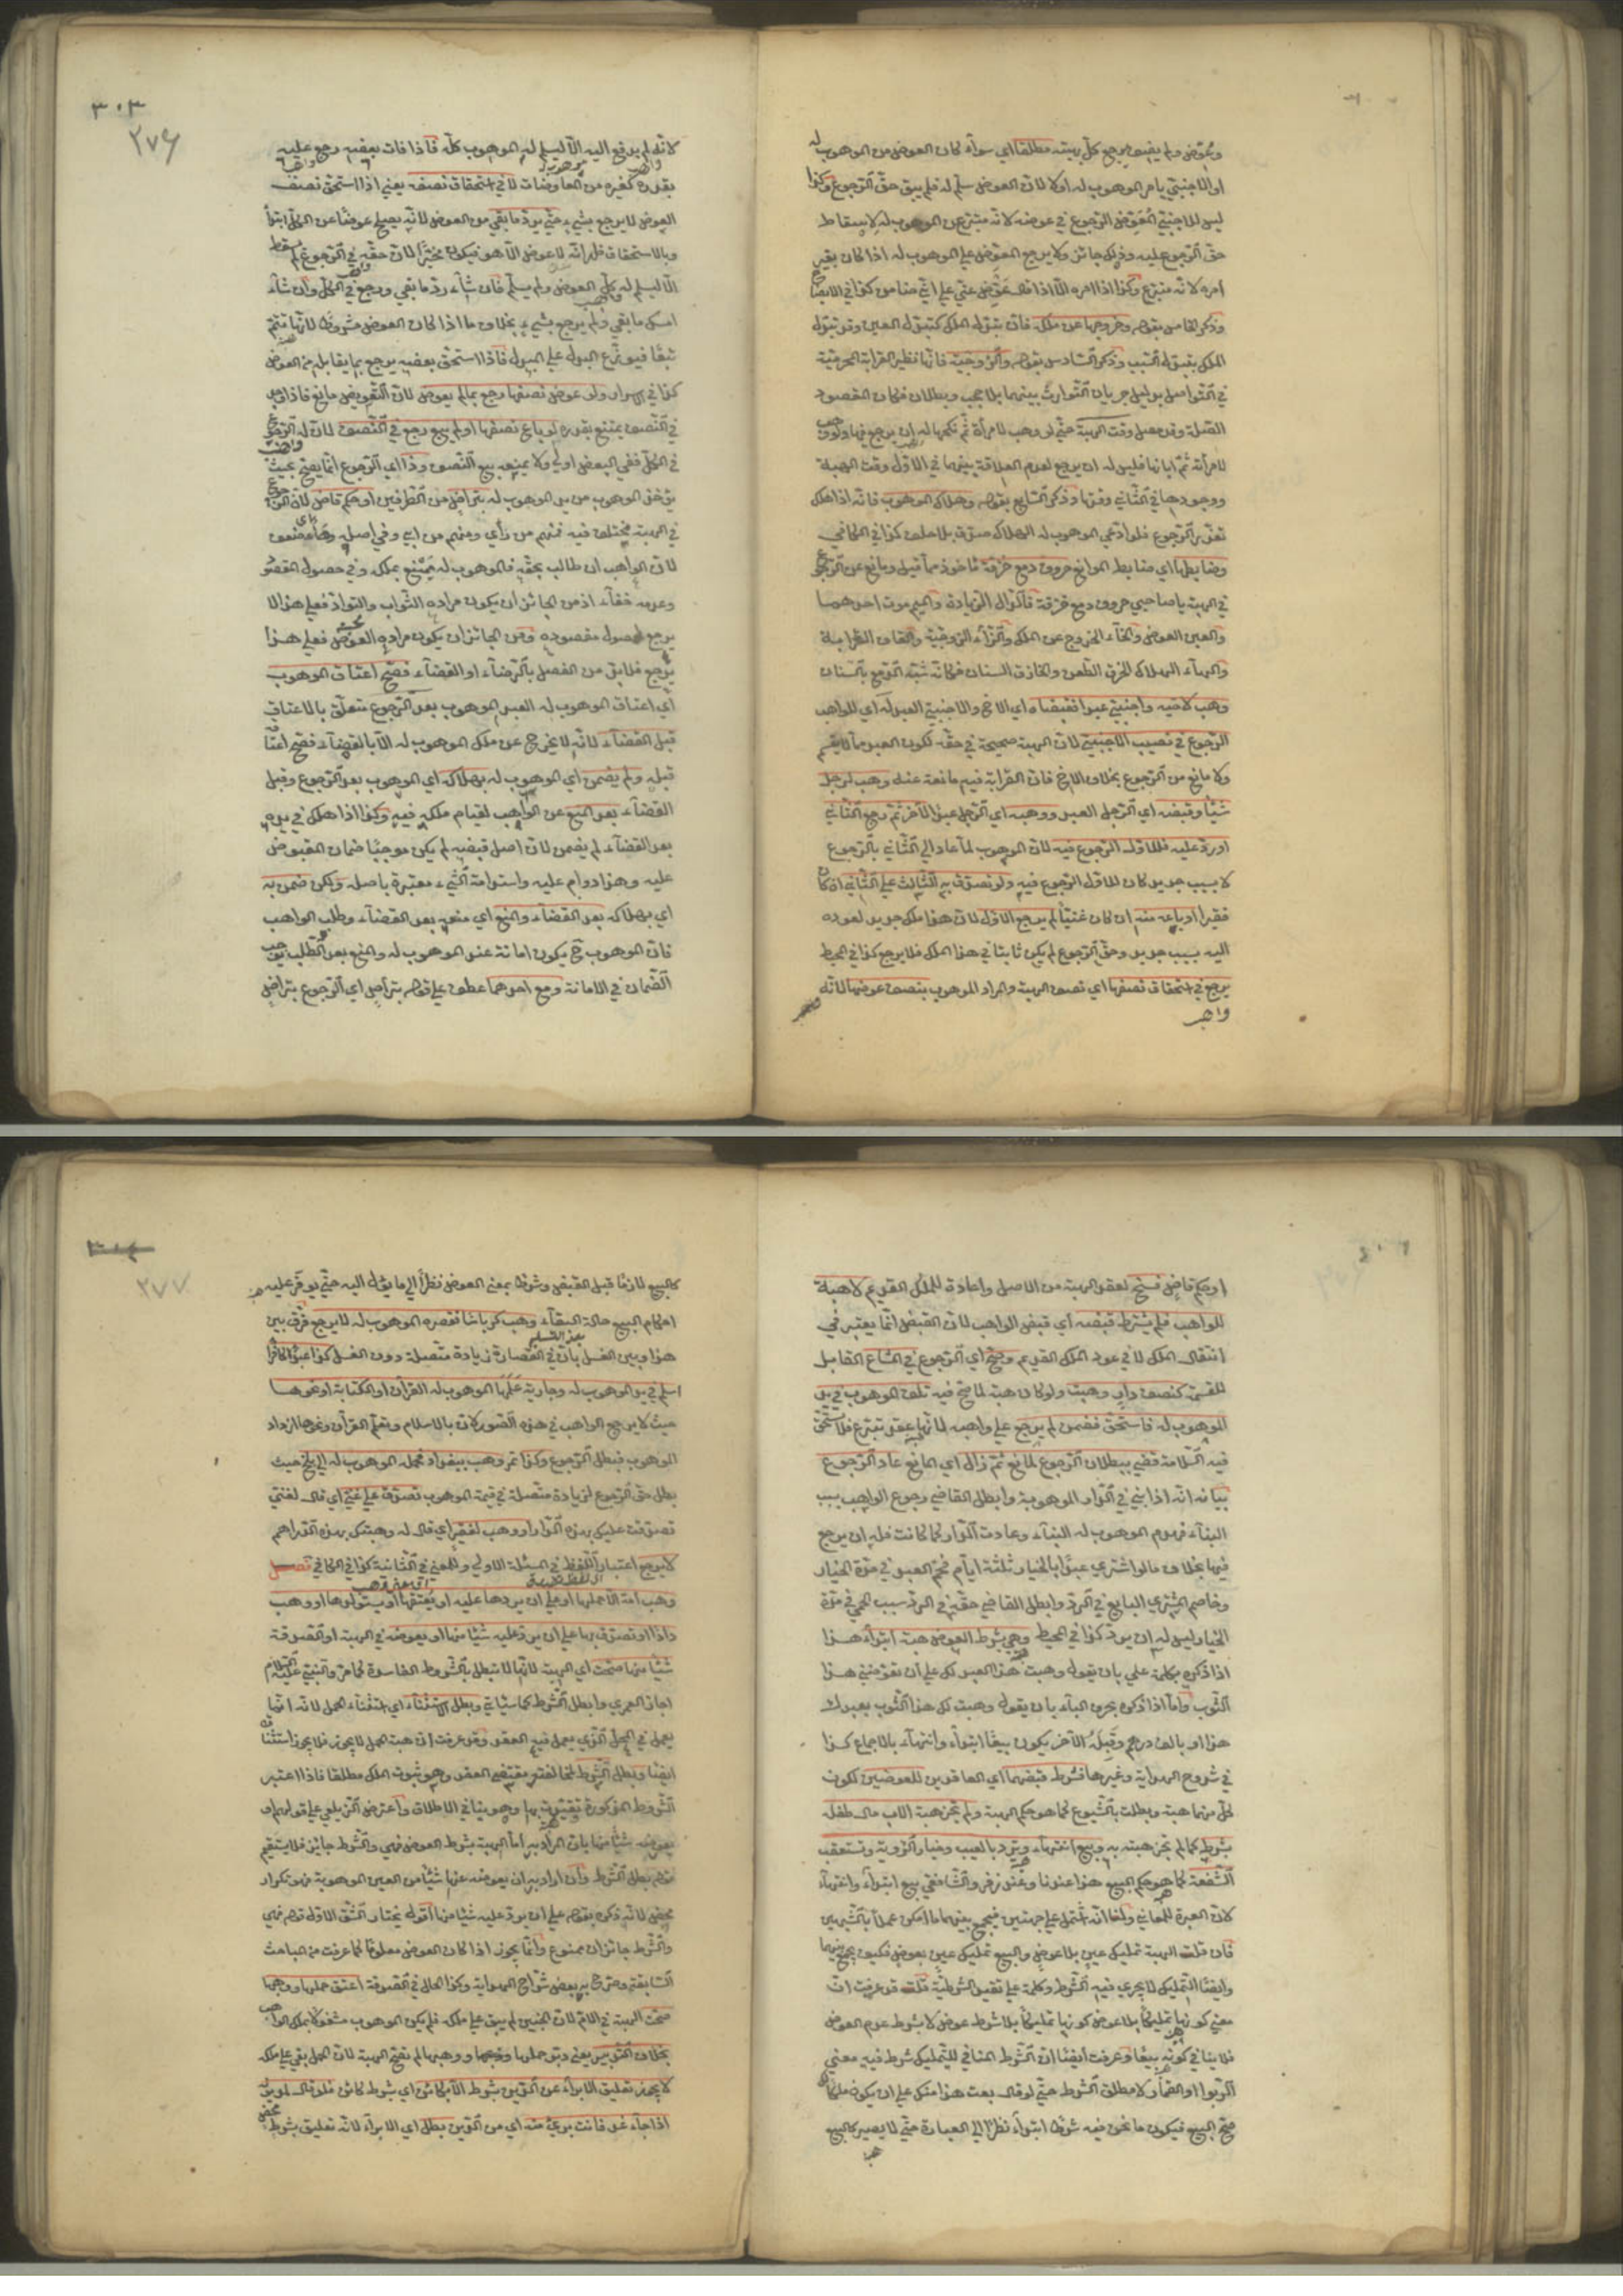 وعوض ولم يضف رجع كل بهبته مطلقا اي سواء كان العوض من الموهوب له
او الاجنبي بامر الموهوب له اولا لان العوض سلم له فلم يبق حق الرجوع وكذا
ليس للاجنبي المعوض الرجوع في عوضه لانه متبرع عن الموهوب له لاسقاط
حق الرجوع عليه وذلك جائز ولا يرجع المعوض على الموهوب له اذا كان بغير
امره لانه متبرع وكذا اذا امره الا اذا قال عوض عني على اني ضامن كذا في الايضاح
وذكر الخامس بقوله وخروجها عن ملكه فان تبدل الملك كتبدل العين وقد تبدل
الملك بتبدل السبب وذكر السادس بقوله والزوجية فانها نظير القرابة المحرمية
في التواصل بدليل جريان التوارث بينهما بلا حجب وبطلان فكان المقصود
الصلة وقد حصل وقت الهبة حتى لو وهب لامرأة ثم نكحها له ان يرجع فيها ولو وهب
لامرأته ثم ابانها فليس له ان يرجع لعدم العلاقة بينهما في الاول وقت الهبة
ووجودها في الثاني وقتها وذكر السابع بقوله وهلاك الموهوب فانه اذا هلك
تعذر الرجوع فلو ادعى الموهوب له الهلاك صدق بلا حلف كذا في الكافي
وضابطها اي ضابط الموانع حروف دمع خزقه مأخوذ مما قيل ومانع عن الرجوع
في الهبة يا صاحبي حروف دمع خزقه فالدال الزيادة والميم موت احدهما
والعين العوض والخاء الخروج عن الملك والزاء الزوجية والقاف القرابة
والهاء الهلاك الخزق الطعن والخازق السنان فكانه شبه الدمع بالسنان
وهب لاخيه واجنبي عبدا فقبضاه اي الاخ والاجنبي العبد له اي للواهب
الرجوع في نصيب الاجنبي لان الهبة صحيحة في حقه لكون العبد مما لا يقسم
ولا مانع من الرجوع بخلاف الاخ فان القرابة فيه مانعة عنه وهب لرجل
شيئا وقبضه اي الرجل العبد ووهبه اي الرجل عبدا لآخر ثم رجع الثاني
او رد عليه فللاول الرجوع فيه لان الموهوب لما عاد الى الثاني بالرجوع
لا بسبب جديد كان للاول الرجوع فيه ولو تصدق به الثالث على الثاني ان كان
فقيرا او باعه منه ان كان غنيا لم يرجع الاول لان هذا ملك جديد لعوده
اليه بسبب جديد وحق الرجوع لم يكن ثابتا في هذا الملك فلا يرجع كذا في المحيط
يرجع في استحقاق نصفها اي نصف الهبة والمراد الموهوب بنصف عوضها لانه
واهب
٣٠٣
٢٧٦
لانه لم يدفع اليه الا ليسلم له الموهوب كله فاذا فات بعضه رجع عليه
بقدره كغيره من المعاوضات لا في استحقاق نصفه يعني اذا استحق نصف
العوض لا يرجع بشيء حتى يرد ما بقي من العوض لانه يصلح عوضا عن الكل ابتداء
وبالاستحقاق ظهر انه لا عوض الا هو فيكون مخيرا لان حقه في الرجوع لم يسقط
الا ليسلم له كل العوض ولم يسلم فان شاء رد ما بقي ورجع في الكل وان شاء
امسك ما بقي ولم يرجع بشيء بخلاف ما اذا كان العوض مشروطا لانها تتم
كذا في الاسرار ولو عوض نصفها رجع بما لم يعوض لان التعويض مانع فاذا وجد
في النصف يمتنع بقدره لو باع نصفها او لم يبع رجع في النصف لان له الرجوع
في الكل ففي البعض اولى ولا يمنعه بيع النصف وذا اي الرجوع انما يصح بحيث
يؤخذ الموهوب من يد الموهوب له بتراض من الطرفين او حكم قاض لان الرجوع
في الهبة مختلف فيه فمنهم من رأى ومنهم من ابى وفي اصله وهاء وضعف
لان الواهب ان طالب بحقه فالموهوب له يمتنع بملكه وفي حصول المقصود
وعدمه خفاء اذ من الجائز ان يكون مراده الثواب والتودد فعلى هذا لا
يرجع لحصول مقصوده ومن الجائز ان يكون مراده العوض فعلى هذا
يرجع فلا بد من الفصل بالرضاء او القضاء فصح اعتاق الموهوب
اي اعتاق الموهوب له العبد الموهوب بعد الرجوع متعلق بالاعتاق
قبل القضاء لانه لا يخرج عن ملك الموهوب له الا بالقضاء فصح اعتاقه
قبله ولم يضمن اي الموهوب له بهلاكه اي الموهوب بعد الرجوع وقبل
القضاء بعد المنع عن الواهب لقيام ملكه فيه وكذا اذا هلك في يده
بعد القضاء لم يضمن لان اصل قبضه لم يكن موجبا ضمان المقبوض
عليه وهذا دوام عليه واستدامة الشيء معتبرة باصله ولكن ضمن به
اي بهلاكه بعد القضاء والمنع اي منعه بعد القضاء وطلب الواهب
فان الموهوب ح يكون امانة عند الموهوب له والمنع بعد الطلب يوجب
الضمان في الامانة ومع احدهما عطف على قوله بتراض اي الرجوع بتراض
او حكم قاض فسخ لعقد الهبة من الاصل واعادة للملك القديم لا هبة
للواهب فلم يشترط قبضه اي قبض الواهب لان القبض انما يعتبر في
انتقال الملك لا في عود الملك القديم وصح اي الرجوع في المشاع القابل
للقسمة كنصف دار وهبت ولو كان هبة لما صح فيه تلف الموهوب في يد
الموهوب له فاستحق فضمن لم يرجع على واهبه لانها عقد تبرع فلا يستحق
فيه السلامة قضي ببطلان الرجوع لمانع ثم زال اي المانع عاد الرجوع
بيانه انه اذا بنى في الدار الموهوبة وابطل القاضي رجوع الواهب بسبب
البناء فهدم الموهوب له البناء وعادت الدار كما كانت فله ان يرجع
فيها بخلاف ما لو اشترى عبدا بالخيار ثلثة ايام فحم العبد في مدة الخيار
وخاصم المشتري البايع في الرد وابطل القاضي حقه في الرد بسبب الحمى في مدة
الخيار ليس له ان يرد كذا في المحيط وهي بشرط العوض هبة ابتداء هذا
اذا ذكره بكلمة على بان يقول وهبت هذا العبد لك على ان تعوضني هذا
الثوب واما اذا ذكره بحرف الباء بان يقول وهبت لك هذا الثوب بعبدك
هذا او بالف درهم وقبله الآخر يكون بيعا ابتداء وانتهاء بالاجماع كذا
في شروح الهداية وغيرها فشرط قبضهما اي العاقدين للعوضين لكون
كل منهما هبة وبطلت بالشيوع كما هو حكم الهبة ولم تجز هبة الاب مال طفله
بشرطه كما لم تجز هبته به وبيع انتهاء وترد بالعيب وخيار الرؤية وتستحق
الشفعة كما هو حكم البيع هذا عندنا وعند زفر والشافعي بيع ابتداء وانتهاء
لان العبرة للمعاني ولنا انه اشتمل على جهتين فيجمع بينهما ما امكن عملا بالشبهين
فان قلت الهبة تمليك عين بلا عوض والبيع تمليك عين بعوض فكيف يجمع بينهما
وايضا التمليك لا يجري فيه الشرط وكلمة على تفيد الشرطية قلت قد عرفت ان
معنى كونها تمليكا بلا عوض كونها تمليكا بلا شرط عوض لا بشرط عدم العوض
فلا ينافي كونه بيعا وعرفت ايضا ان الشرط المنافي للتمليك شرط فيه معنى
الربوا او القمار لا مطلق الشرط حتى لو قال بعت هذا منك على ان يكون ملكا لك
صح البيع فيكون ما نحن فيه شرطا ابتداء نظرا الى العبارة حتى لا يصير كالبيع
٣٠٤
٢٧٧
كالبيع لازما قبل القبض وشرطا بمعنى العوض نظرا الى ما يؤل اليه حتى يوفر عليه
احكام البيع حالة البقاء وهب كرباسا فقصره الموهوب له لا يرجع فرق بين
هذا وبين الغسل بان في القصارة زيادة متصلة دون الغسل كذا عبد كافر
اسلم في يد الموهوب له وجارية علمها الموهوب له القرآن او الكتابة او نحوها
حيث لا يرجع الواهب في هذه الصور لان بالاسلام وتعلم القرآن ونحوها ازداد
الموهوب فبطل الرجوع وكذا تمر وهب ببغداد فحمله الموهوب له الى بلخ حيث
بطل حق الرجوع لزيادة متصلة في قيمة الموهوب تصدق على غني اي قال لغني
تصدقت عليك بهذه الدار او وهب لفقير اي قال له وهبتك بهذه الدراهم
لا يرجع اعتبارا للفظ في المسئلة الاولى وللمعنى في الثانية كذا في الكافي فصل
وهب امة الا حملها او على ان يردها عليه او يعتقها او يستولدها او وهب
دارا او تصدق بها على ان يرد عليه شيئا منها او يعوضه في الهبة او الصدقة
شيئا منها صحت اي الهبة لانها لا تبطل بالشروط الفاسدة كما مر والنبي عليه السلام
اجاز العمرى وابطل الشرط كما سيأتي وبطل الاستثناء اي استثناء الحمل لانه انما
يعمل في المحل الذي يعمل فيه العقد وقد عرفت ان هبة الحمل لا يجوز فلا يجوز استثناؤه
ايضا وبطل الشرط لمخالفته مقتضى العقد وهو ثبوت الملك مطلقا فاذا اعتبر
الشروط المذكورة تقيد بها وهو ينافي الاطلاق واعترض الزيلعي على قولهم او
يعوضه شيئا منها بان المراد به اما الهبة بشرط العوض فهي والشرط جائز فلا يستقيم
قوله بطل الشرط وان اراد به ان يعوضه عنها شيئا من العين الموهوبة فهو تكرار
محض لانه ذكره بقوله على ان يرد عليه شيئا منها اقول نختار الشق الاول قوله فهي
والشرط جائزان ممنوع وانما يجوز اذا كان العوض معلوما كما عرفت من المباحث
السابقة وصرح به بعض شراح الهداية وكذا الحال في الصدقة اعتق حملها ووهبها
صحت الهبة في الام لان الجنين لم يبق على ملكه فلم يكن الموهوب مشغولا بملك الواهب
بخلاف التدبير يعني دبر حملها ووهبها لم تصح الهبة لان الحمل بقي على ملكه
لا يجوز تعليق الابراء عن الدين بشرط الا بكائن اي بشرط كائن فلو قال لمديونه
اذا جاء غد فانت بريء منه اي من الدين بطل اي الابراء لانه تعليق بشرط محض